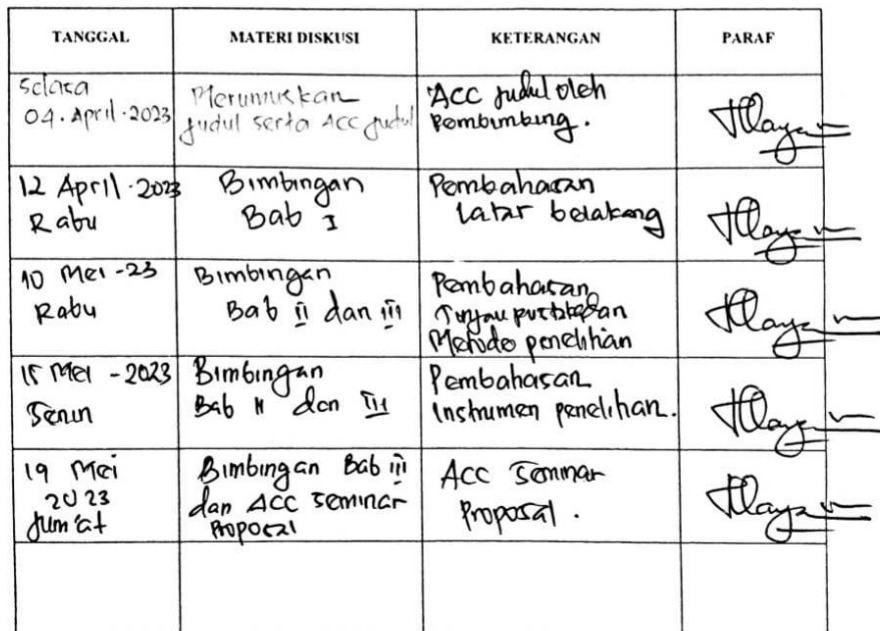 TANGGAL MATERI DISKUSI KETERANGAN PARAF
Selasa
04. April. 2023
Merumuskan
judul serta ACC judul
ACC judul oleh
Pembimbing.
12 April. 2023
Rabu
Bimbingan
Bab I
Pembahasan
Latar belakang
10 Mei -23
Rabu
Bimbingan
Bab II dan III
Pembahasan
Tinjau
Metode penelitian
15 Mei - 2023
Senin
Bimbingan
Bab II dan III
Pembahasan
Instrumen penelitian.
19 Mei
2023
Jum'at
Bimbingan Bab III
dan ACC seminar
Proposal
ACC Seminar
Proposal.